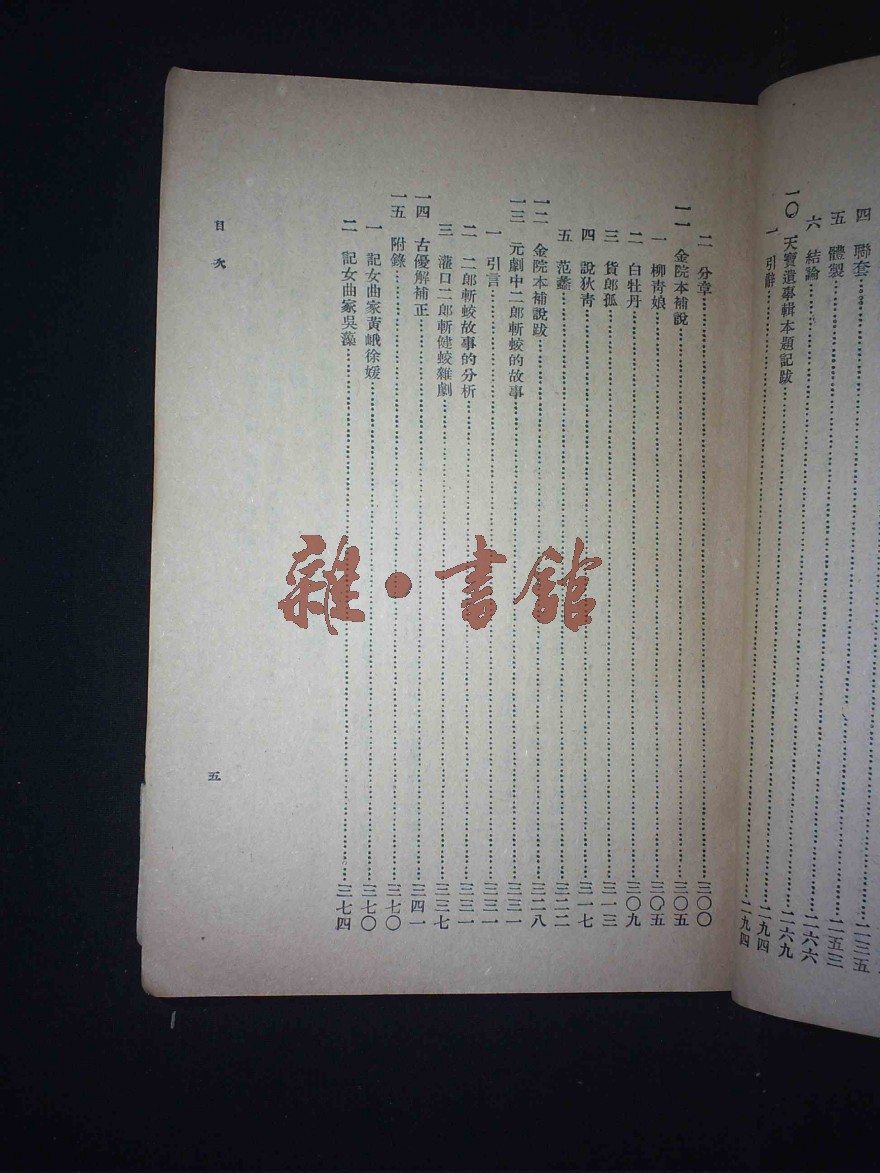 四　聯套……二五三
五　體製……二六六
六　結論……二六九
一〇　天寶遺事輯本題記跋……二九四
一　引辭……二九四
二　分章……三〇〇
一一　金院本補說……三〇五
一　柳青娘……三〇五
二　白牡丹……三〇九
三　貨郎孤……三一三
四　說狄青……三一七
五　范蠡……三二二
一二　金院本補說跋……三二八
一三　元劇中二郎斬蛟的故事……三三一
一　引言……三三一
二　二郎斬蛟故事的分析……三三一
三　灌口二郎斬健蛟雜劇……三三七
一四　古優解補正……三四一
一五　附錄……三七〇
一　記女曲家黃峨徐媛……三七〇
二　記女曲家吳藻……三七四
目次
五
雜·書館